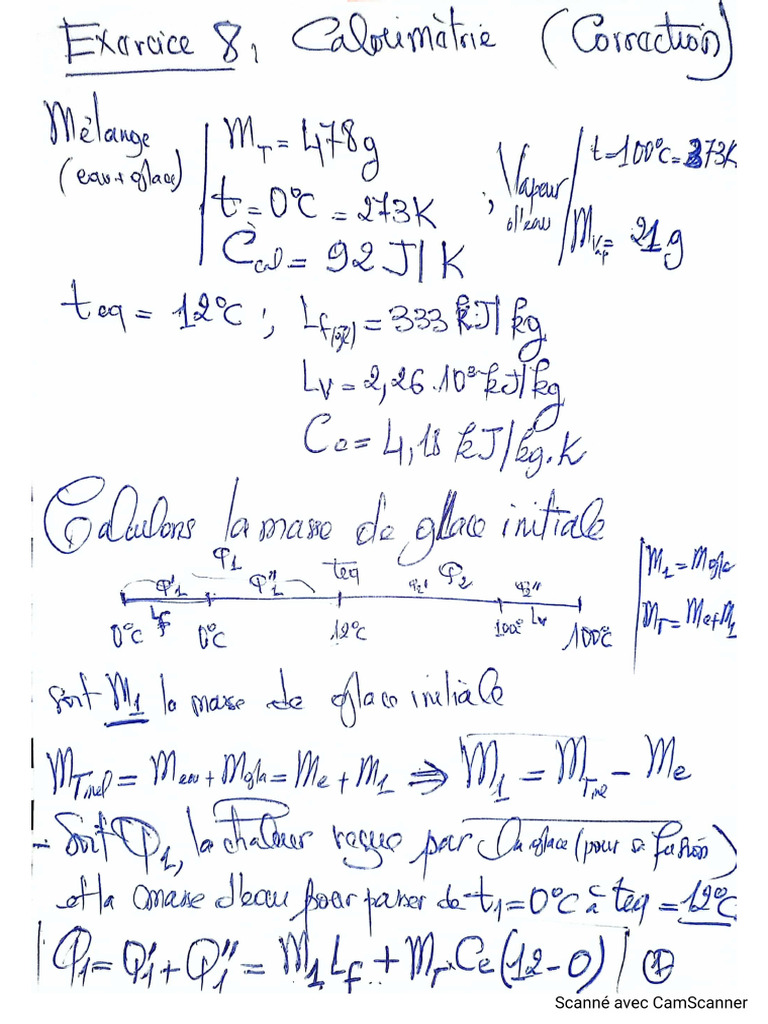 Exercice 8, Calorimètrie (Correction)
Mèlange (eau + glace) | m_T = 478g ; Vapeur d'eau | t = 100°C = 373K
t = 0°C = 273K m_vap = 21g
C_cal = 92 J/K
t_eq = 12°C ; L_f(gl) = 333 kJ/kg
L_v = 2,26.10³ kJ/kg
C_e = 4,18 kJ/kg.K
Calculons la masse de glace initiale
φ_1 t_eq φ_2
φ'_1 φ''_1 φ_2' φ_2'' | m_1 = m_gla
0°C L_f 0°C 12°C 100° L_v 100°C | m_T = m_e + m_1
soit m_1 la masse de glace initiale
m_Tinel = m_eau + m_gla = m_e + m_1 ⇒ m_1 = m_Tine - m_e
- Soit φ_1, la chaleur reçue par la glace (pour sa fusion)
et la masse d'eau pour passer de t_1 = 0°C à t_eq = 12°C
| φ_1 = Q'_1 + Q''_1 = m_1 L_f + m_T C_e (12 - 0) | ①
Scanné avec CamScanner